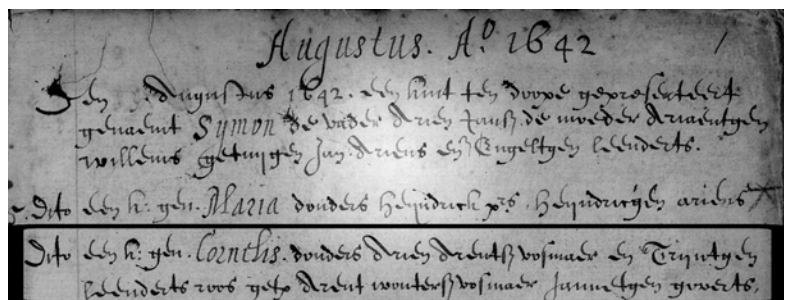 Augustus. Ao 1642
Den 3. Augustus 1642. een kint ten doope gepresenteert
genaemt Symon de vader Arien Jansz de moeder Ariaentgen
willems getuijgen Jan Ariens en Engeltgen leenders.
Dito een k: gen. Maria donders Heijndrick prs. Heijndricgen ariens
Dito een k: gen. Cornelis. donders Arien Arentsz vosmaer en Trijntgen
leenderts roos getx Arent woutersz vosmaer Jannetgen goverts,